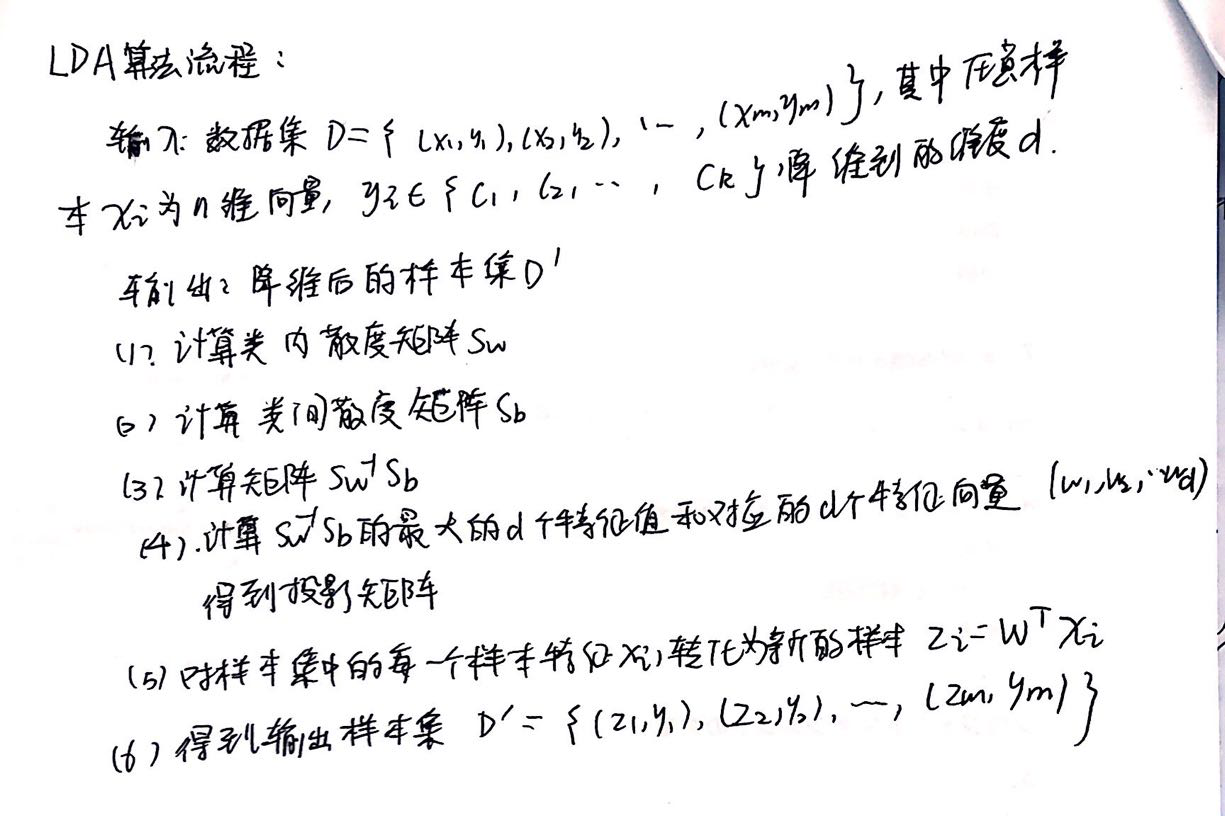 LDA算法流程：
输入：数据集 D={(x₁,y₁),(x₂,y₂),…,(xm,ym)},其中任意样
本 xi为n维向量, yi∈{C₁,C₂,…,Ck},降维到的维度d.
输出：降维后的样本集D'
(1) 计算类内散度矩阵Sw
(2) 计算类间散度矩阵Sb
(3) 计算矩阵 Sw⁻¹Sb
(4).计算 Sw⁻¹Sb的最大的d个特征值和对应的d个特征向量 (w₁,w₂,…wd)
得到投影矩阵
(5) 对样本集中的每一个样本特征xi,转化为新的样本 zi=Wᵀxi
(6) 得到输出样本集 D'={(z₁,y₁),(z₂,y₂),…,(zm,ym)}